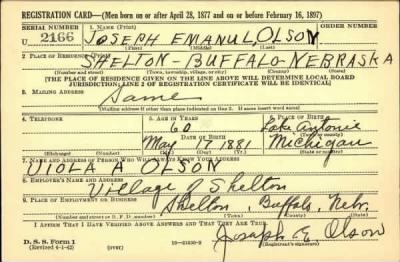 REGISTRATION CARD—(Men born on or after April 28, 1877 and on or before February 16, 1897)
SERIAL NUMBER 1. NAME (Print) ORDER NUMBER
U 2166 JOSEPH EMANUL OLSON
(First) (Middle) (Last)
2. PLACE OF RESIDENCE (Print)
SHELTON-BUFFALO-NEBRASKA
(Number and street) (Town, township, village, or city) (County) (State)
[THE PLACE OF RESIDENCE GIVEN ON THE LINE ABOVE WILL DETERMINE LOCAL BOARD
JURISDICTION; LINE 2 OF REGISTRATION CERTIFICATE WILL BE IDENTICAL]
3. MAILING ADDRESS
Same
[Mailing address if other than place indicated on line 2. If same insert word same]
4. TELEPHONE 5. AGE IN YEARS 6. PLACE OF BIRTH
60 Lake Antonie
DATE OF BIRTH (Town or county)
May 17 1881 Michigan
(Exchange) (Number) (Mo.) (Day) (Yr.) (State or country)
7. NAME AND ADDRESS OF PERSON WHO WILL ALWAYS KNOW YOUR ADDRESS
VIOLA A OLSON
8. EMPLOYER'S NAME AND ADDRESS
Village of Shelton
9. PLACE OF EMPLOYMENT OR BUSINESS
Shelton, Buffalo, Nebr.
(Number and street or R. F. D. number) (Town) (County) (State)
I AFFIRM THAT I HAVE VERIFIED ABOVE ANSWERS AND THAT THEY ARE TRUE.
D. S. S. Form 1
(Revised 4-1-42) (over) 16—21630-2 Joseph E. Olson
(Registrant's signature)